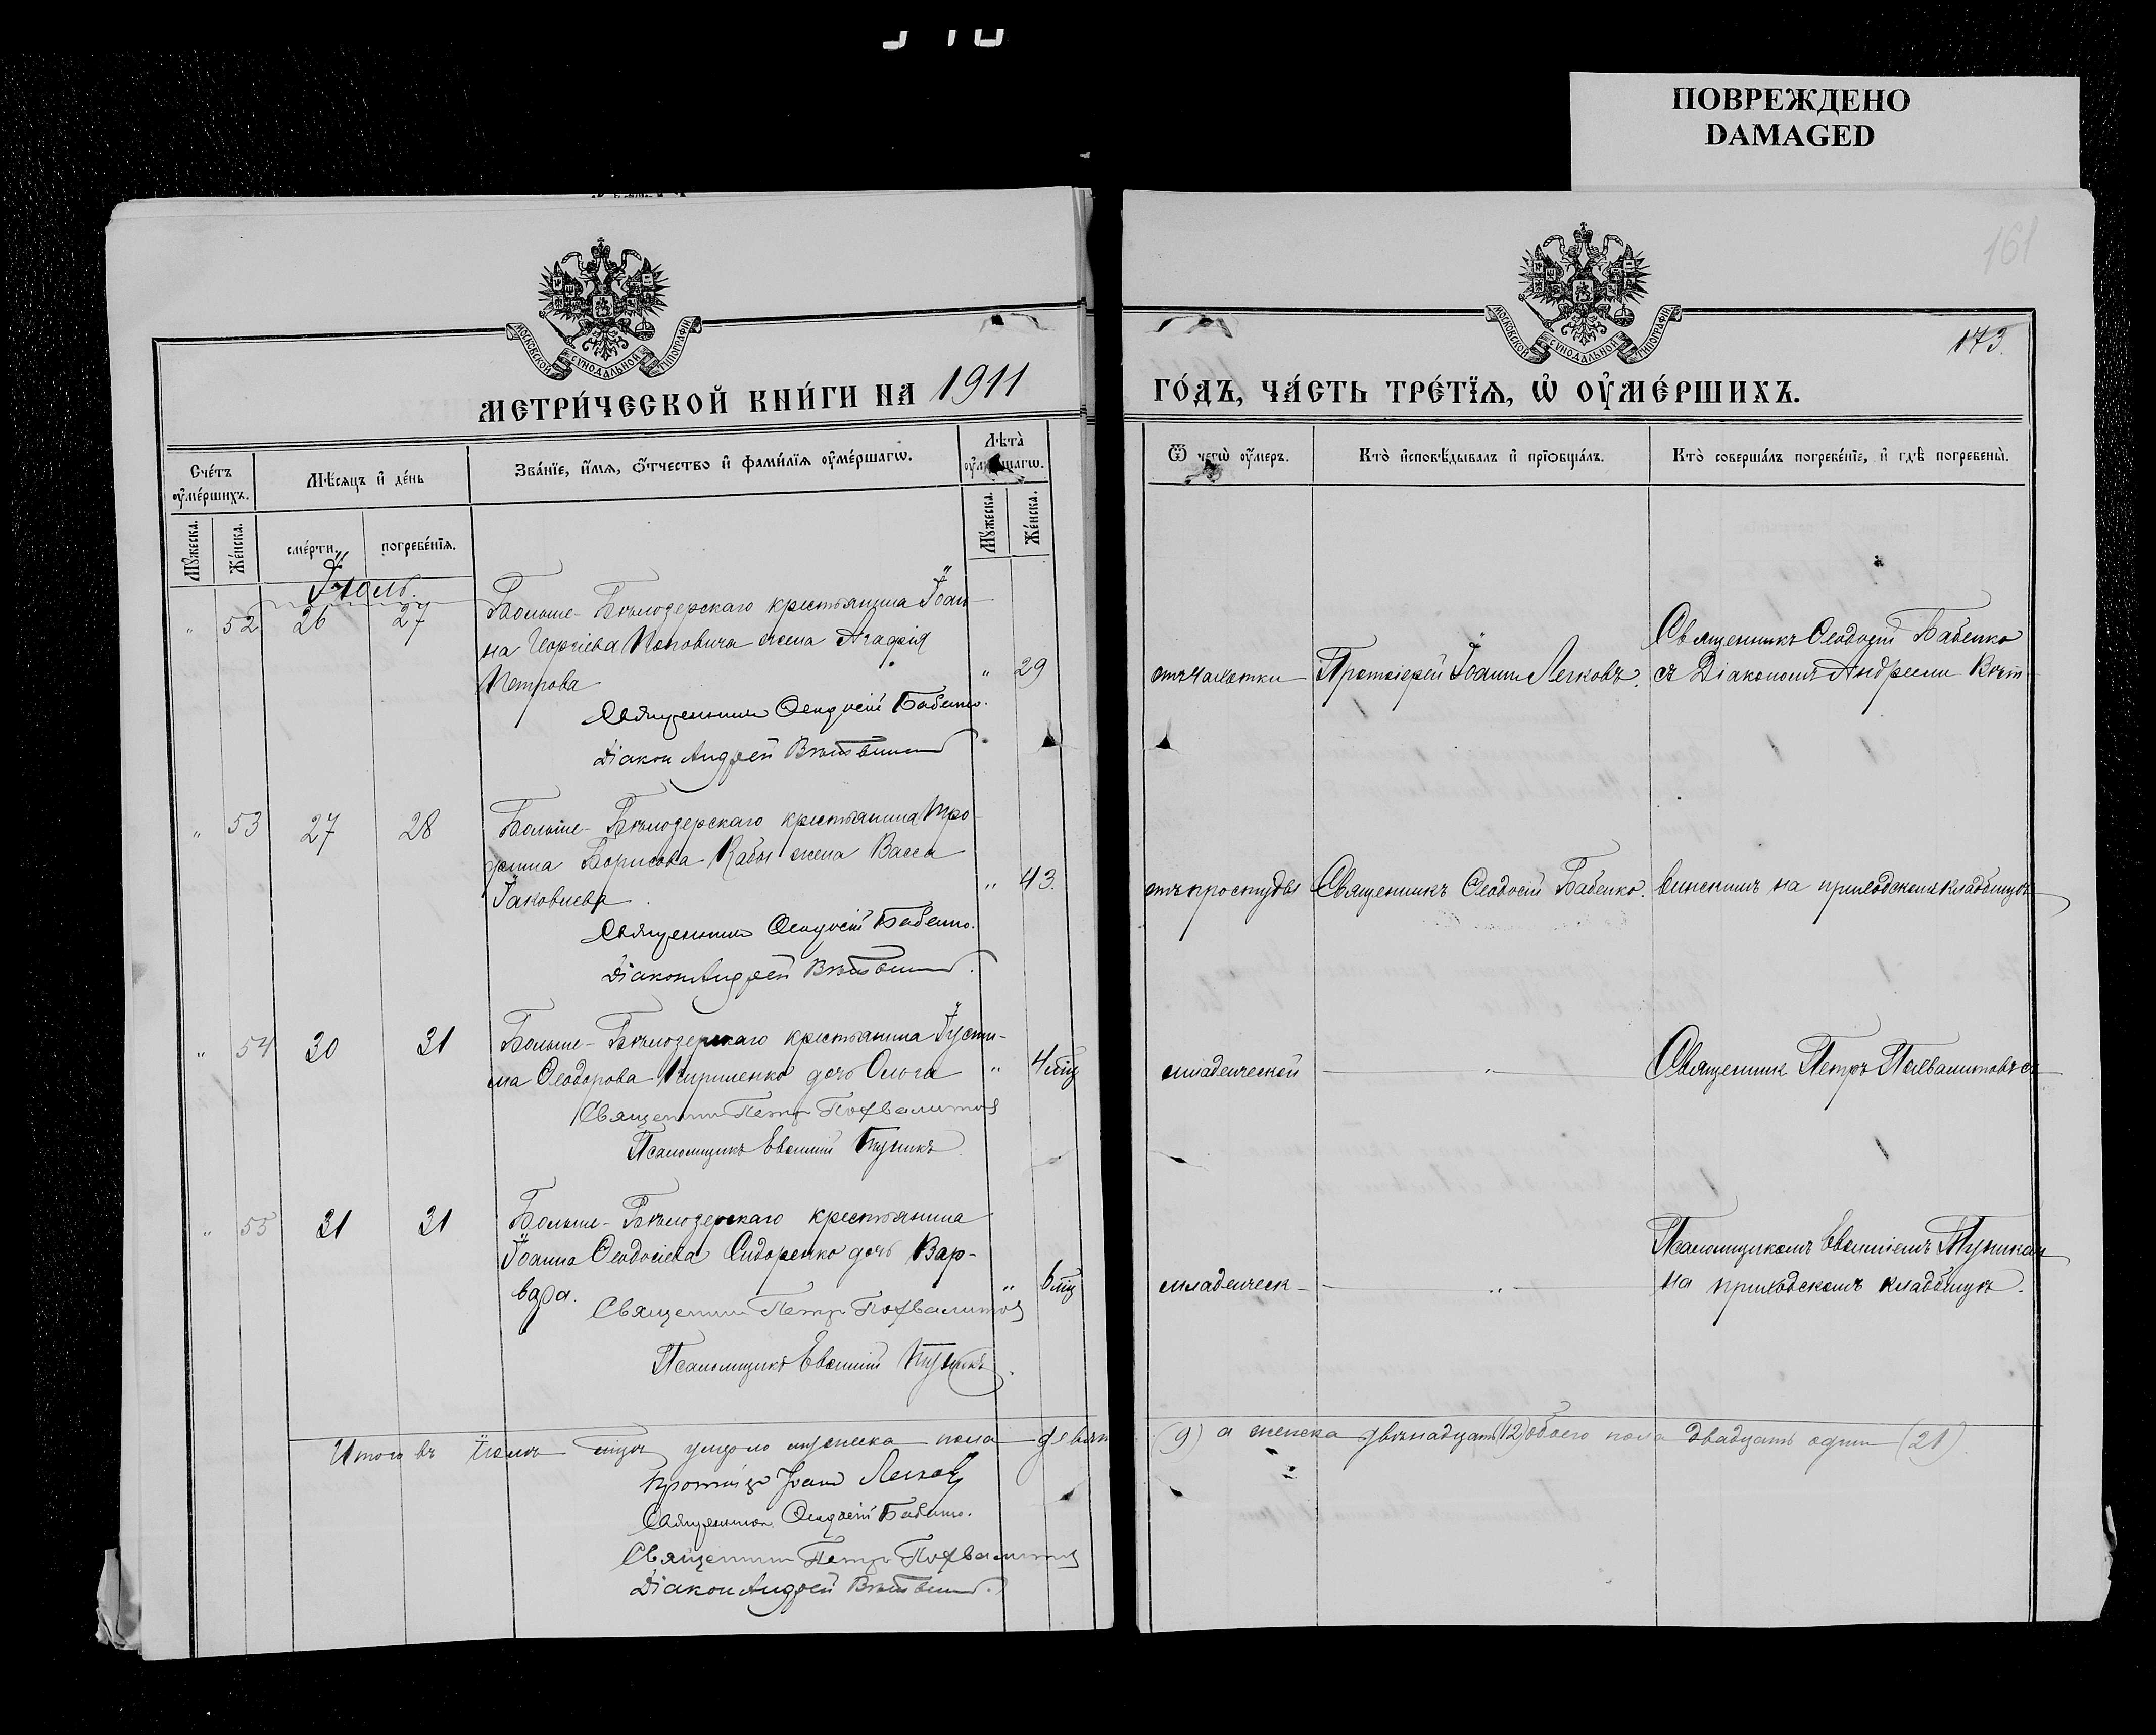 ПОВРЕЖДЕНО
DAMAGED
161
173.
МОСКОВСКОЙ СУНОДАЛЬНОЙ ТИПОГРАФІИ
МОСКОВСКОЙ СУНОДАЛЬНОЙ ТИПОГРАФІИ
МЕТРИ́ЧЕСКОЙ КНИ́ГИ НА 1911
ГО́ДЪ, ЧА́СТЬ ТРЕ́ТЇѦ, Ѡ҆ ОУ҆МЕ́РШИХЪ.
Сче́тъ оу҆ме́ршихъ.
Мѣсѧцъ и҆ де́нь
Зва́нїе, и҆́мѧ, ѻ҆́тчество и҆ фами́лїѧ оу҆ме́ршагѡ.
Лѣта̀
Мꙋ́жеска.
Же́нска.
сме́рти.
погребе́нїѧ.
Мꙋ́жеска.
Же́нска.
Ѿ чегѡ̀ оу҆́меръ.
Кто̀ и҆сповѣ́дывалъ и҆ прїѡбща́лъ.
Кто̀ соверша́лъ погребе́нїе, и҆ гдѣ̀ погребены̀.
Іюль.
" 52 26 27 Больше-Бѣлозерскаго крестьянина Іоан-
на Георгіева Поповича жена Агафія
Петрова " 29
Священникъ Ѳеодосій Бабенко.
Діаконъ Андрей
отъ чахотки Протоіерей Іоаннъ Легковъ.
Священникъ Ѳеодосій Бабенко
съ Діакономъ Андреемъ Вѣт-
" 53 27 28 Больше-Бѣлозерскаго крестьянина Тро-
фима Борисова Кабы жена Васса
Іаковлева " 43.
Священникъ Ѳеодосій Бабенко.
Діаконъ Андрей
отъ простуды Священникъ Ѳеодосій Бабенко. винскимъ на приходскомъ кладбищѣ
" 54 30 31 Больше-Бѣлозерскаго крестьянина Іусти-
на Ѳеодорова Кириленко дочь Ольга " 4 мѣц
Священникъ Петръ Похвалитовъ
Псаломщикъ Евѳимій
младенческой " Священникъ Петръ Похвалитовъ съ
" 55 31 31 Больше-Бѣлозерскаго крестьянина
Іоанна Ѳеодосіева Сидоренко дочь Вар-
вара. " 6 мѣц
Священникъ Петръ Похвалитовъ
Псаломщикъ Евѳимій
младенческ- "
Псаломщикомъ Евѳиміемъ
на приходскомъ кладбищѣ.
Итого въ Іюлѣ мѣцѣ умерло мужеска пола девять (9) а женска двѣнадцать (12) обоего пола двадцать одинъ (21)
Іоаннъ Легковъ
Священникъ Ѳеодосій Бабенко.
Священникъ Петръ Похвалитовъ
Діаконъ Андрей